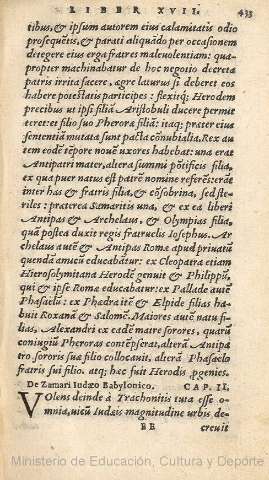 LIBER XVII. 433
tibus, & ipsum autorem eius calamitatis odio
prosequẽtis, & parati aliquãdo per occasionem
detegere eius erga fratres maleuolentiam: qua-
propter machinabatur de hoc negotio decreta
patris irrita facere, ægre laturus si deberet eos
habere potẽtiæ participes: flexitq; Herodem
precibus ut ipsi filiã Aristobuli ducere permit
teret: et filio suo Pheroræ filiã: itaq; prater eius
sententiã mutata sunt pacta cõnubialia. Rex au
tem eodẽ tẽpore nouẽ uxores habebat: una erat
Antipatri mater, altera summi põtificis filia,
ex qua puer natus est patrẽ nomine referẽs: erãt
inter has & fratris filia, & cõsobrina, sed ste-
riles: præterea Samaritis una, & ex ea liberi
Antipas & Archelaus, & Olympias filia,
quã postea duxit regis fratruelis Iosephus. Ar
chelaus autẽ & Antipas Romæ apud priuatũ
quendã amicũ educabãtur: ex Cleopatra etiam
Hierosolymitana Herodẽ genuit & Philippũ,
qui & ipse Romæ educabatur: ex Pallade autẽ
Phasaelũ: ex Phedra itẽ & Elpide filias ha-
buit Roxanã & Salomẽ. Maiores autẽ natu fi-
lias, Alexandri ex eadẽ matre sorores, quarũ
coniugiũ Pheroras contẽpserat, alterã Antipa
tro sororis suæ filio collocauit, alterã Phasaelo
fratris sui filio. atq; hæc fuit Herodis ꝓgenies.
De Zamari Iudæo Babylonico. CAP. II.
VOlens deinde à Trachonitis tuta esse o-
mnia, uicũ Iudæis magnitudine urbis de-
EE creuit
Ministerio de Educación, Cultura y Deporte